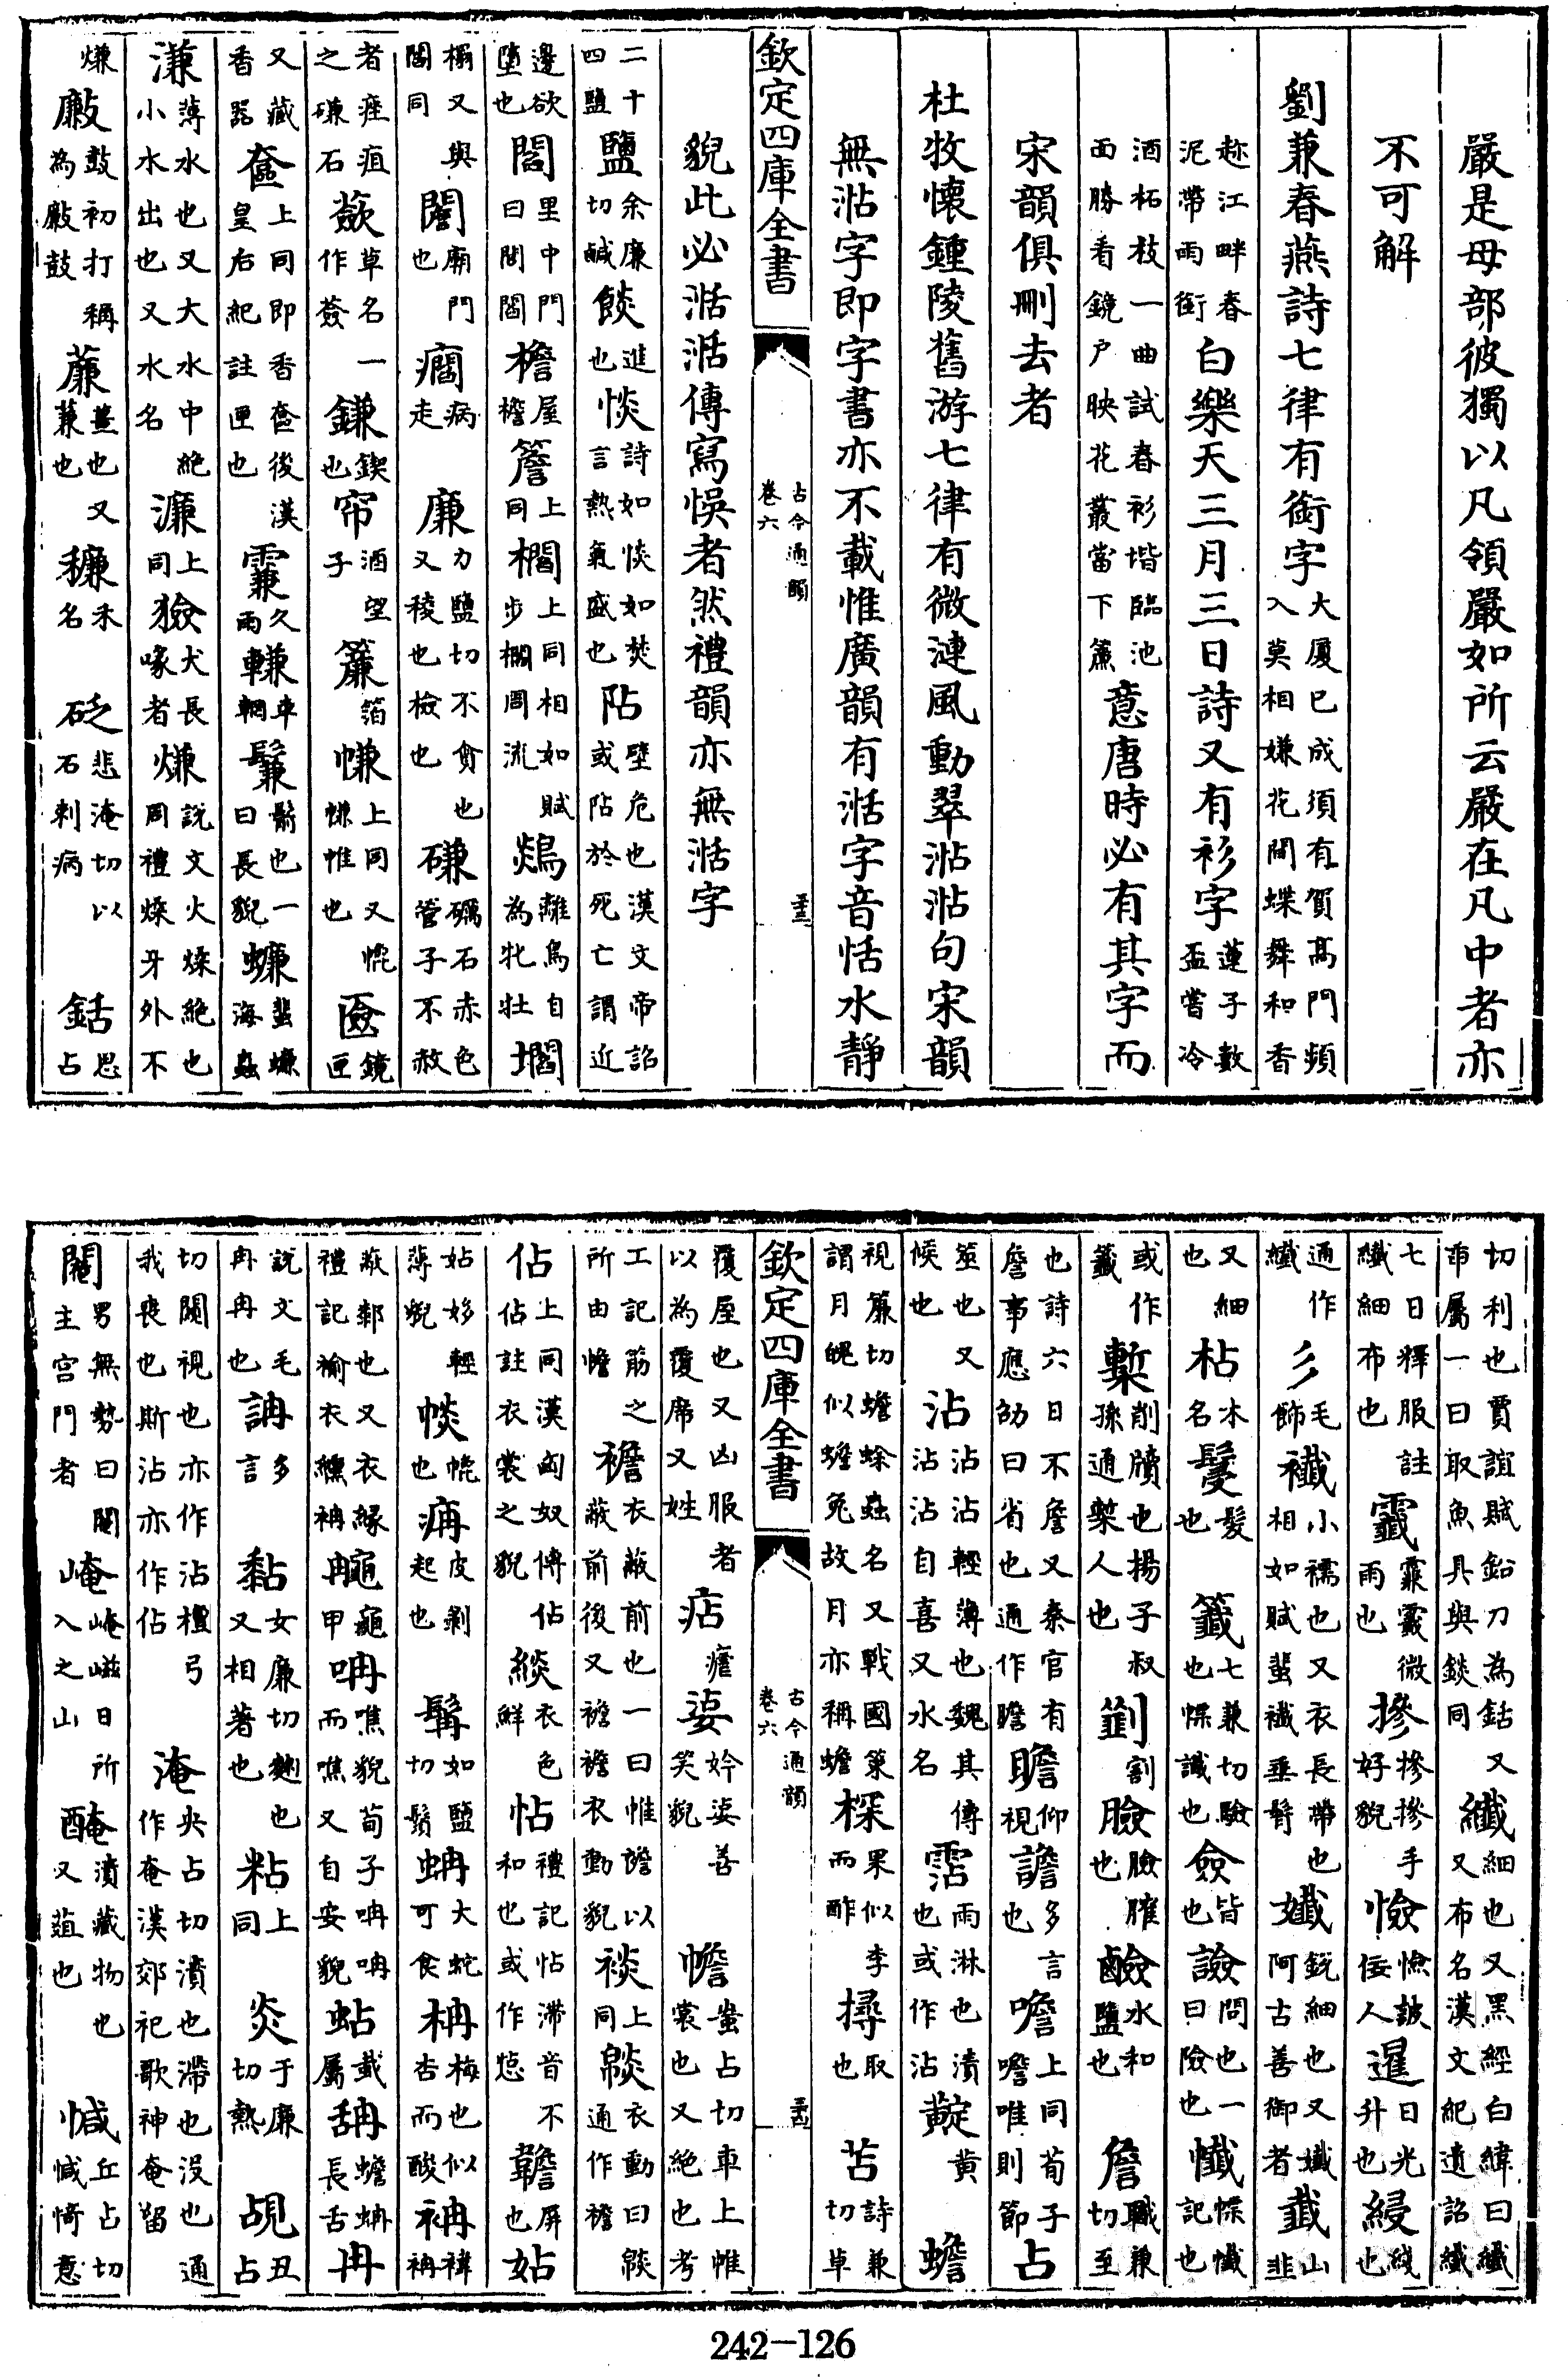 嚴是母部彼獨以凡領嚴如所云嚴在凡中者亦
不可解
劉兼春燕詩七律有銜字大厦已成須有賀高門頻入莫相嫌花間蝶舞和香
趂江畔春泥帶雨銜白樂天三月三日詩又有衫字蓮子數盃嘗冷
酒柘枝一曲試春衫堦臨池面勝看鏡户映花叢當下簾意唐時必有其字而
宋韻俱刪去者
杜牧懷鍾陵舊游七律有微漣風動翠㴸㴸句宋韻
無㴸字即字書亦不載惟廣韻有湉字音恬水靜
欽定四庫全書
古今通韻
卷六
貌此必湉湉傳寫悞者然禮韻亦無湉字
二十四鹽鹽余廉切鹹餤進也惔詩如惔如焚言熱氣盛也阽壁危也漢文帝詔或阽於死亡謂近
邊欲墮也閻里中門曰閻閻檐屋檐簷上同櫩上同相如賦步櫩周流鴆離鳥自為牝牡壛
櫩又與閻同闇廟門也癎病走廉力鹽切不貪也又稜也檢也磏礪石赤色管子不赦
者痤疽之磏石蘞草名一作薟鎌鍥也帘酒望子簾箔㡘上同又帷㡘帷也匳鏡匣
又藏香器奩上同即香奩後漢皇后紀註匣也䨬久雨䡵車輞鬑鬋也一曰長貌蠊蜚蠊海蟲
溓薄水也又大水中絶小水出也又水名濂上同獫犬長喙者熑説文火煣絶也周禮煣牙外不
熑㪘鼓初打稱為㪘鼓蠊薑也又蒹也穅禾名砭悲淹切以石刺病銛思占
切利也賈誼賦鉛刀為銛又臿屬一曰取魚具與錟同纖細也又黑經白緯曰纖又布名漢文紀遺詔纖
七日釋服註纖細布也霺霂霺微雨也摻摻摻手好貌憸憸詖佞人暹日光升也綅綫也
通作纖彡毛飾襳小襦也又衣長帶也相如賦蜚襳垂髾孅鋭細也又孅阿古善御者韱山韭
又細也枮木名鬘髮也籤七兼切驗也㦰識也僉皆也譣問也一曰險也懺㦰懺記也
或作籤槧削牘也揚子叔孫通槧人也劗割臉臉臛也鹼水和鹽也詹職兼切至
也詩六日不詹又秦官有詹事應劭曰省也通作瞻瞻仰視譫多言也噡上同荀子噡唯則節占
筮也又候也沾沾沾輕薄也魏其傳沾沾自喜又水名霑雨淋也漬也或作沾䵈黄蟾
視簾切蟾蜍蟲名又戰國策謂月魄似蟾兔故月亦稱蟾棎果似李而酢撏取也苫詩兼切草
欽定四庫全書
古今通韻
卷六
覆屋也又凶服者以為覆席又姓痁瘧姿妗姿善笑貌幨蚩占切車上帷裳也又絶也考
工記筋之所由幨襜衣蔽前也一曰帷幨以蔽前後又襜襜衣動貌裧上同㡣衣動曰㡣通作襜
佔上同漢匈奴傳佔佔註衣裳之貌緂衣色鮮怗禮記怗滯音不和也或作惉韂屏也姑
姑姼輕薄貌惔帨也㾆皮剝起也髯如鹽切鬚蚺大蛇可食柟梅也似杏而酸袡褘袡
蔽郼也又衣緣禮記褕衣纁袡龜龜甲呥噍貌荀子呥呥而噍又自安貌蛅蛓屬䑙蟾蚺長舌冉
説文毛冉冉也訷多言黏女廉切麴也又相著也粘上同炎于廉切熱覘丑占
切闚視也亦作沾檀弓我喪也斯沾亦作佔淹央占切漬也滯也没也通作奄漢郊祀歌神奄留
閹男無勢曰閹主宫門者崦崦嵫日所入之山醃漬藏物也又菹也㦑丘占切㦑㥓意
242-126